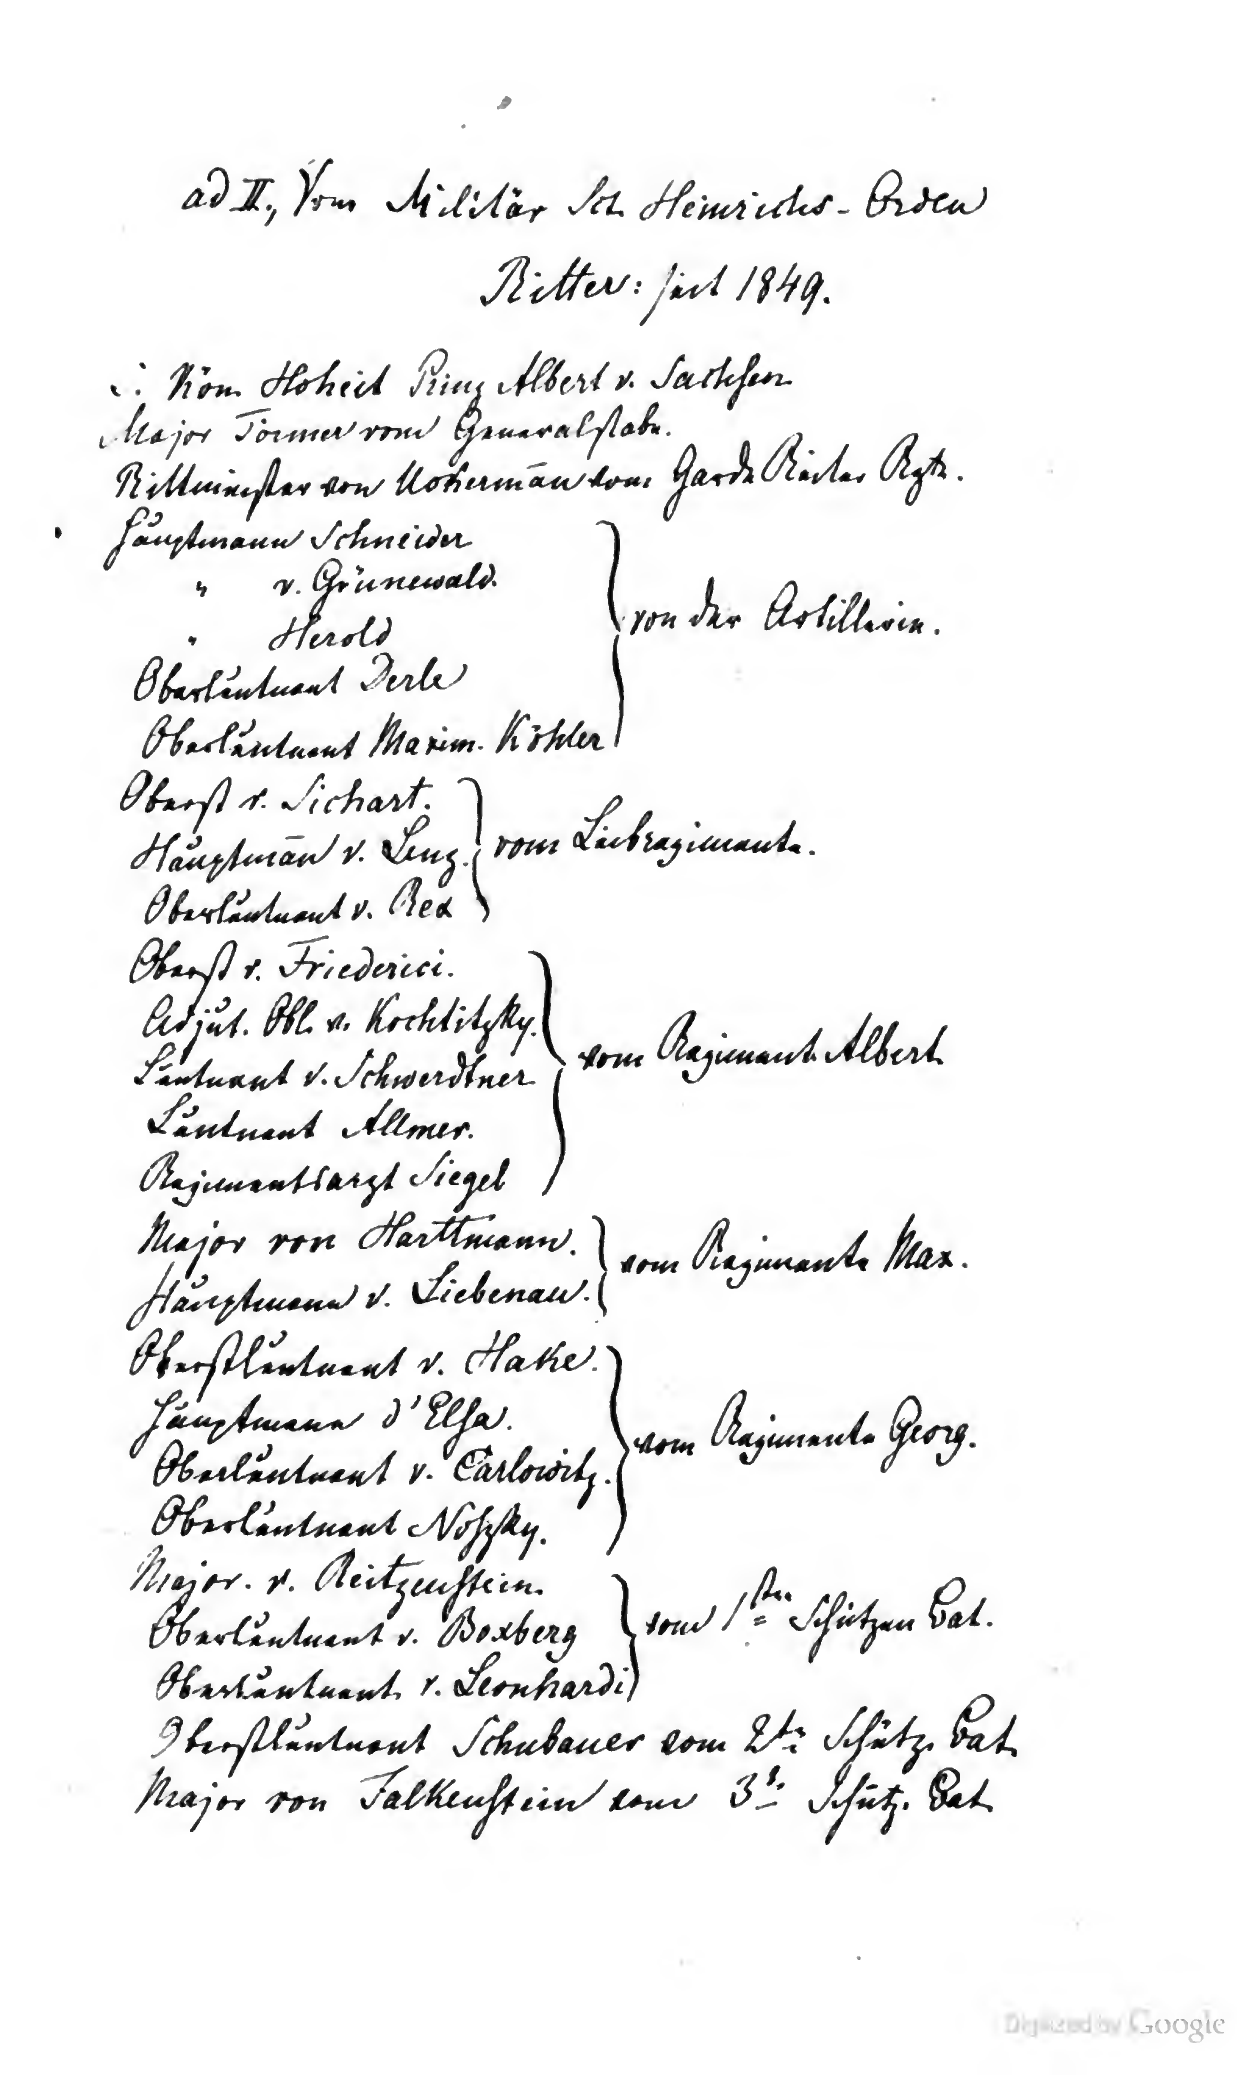 ad II., Vom Militär Sct. Heinrichs-Orden
Ritter: seit 1849.
S. Kön. Hoheit Prinz Albert v. Sachsen
Major Törmer vom Generalstabe.
Rittmeister von Uckerman̄ vom Garde Reiter Rgte.
Hauptmann Schneider
" v. Grünewald.
" Herold
Oberleutnant Derle
Oberleutnant Maxim. Köhler
von der Artillerie.
Oberst v. Sichart.
Hauptman̄ v. Lenz.
Oberleutnant v. Rex
vom Leibregimente.
Oberst v. Friederici.
Adjut. Obl. v. Kochtitzky.
Leutnant v. Schwerdtner
Leutnant Allmer.
Regimentsarzt Siegel
vom Regiment Albert
Major von Harttmann.
Hauptmann v. Liebenau.
vom Regimente Max.
Oberstleutnant v. Hake.
Hauptmann d'Elsa.
Oberleutnant v. Carlowitz.
Oberleutnant Noszky.
vom Regimente Georg.
Major. v. Reitzenstein.
Oberleutnant v. Boxberg
Oberleutnant v. Leonhardi
vom 1sten Schützen Bat.
Oberstleutnant Schubauer vom 2te Schütz. Bat.
Major von Falkenstein vom 3t. Schütz. Bat.
Digitized by Google